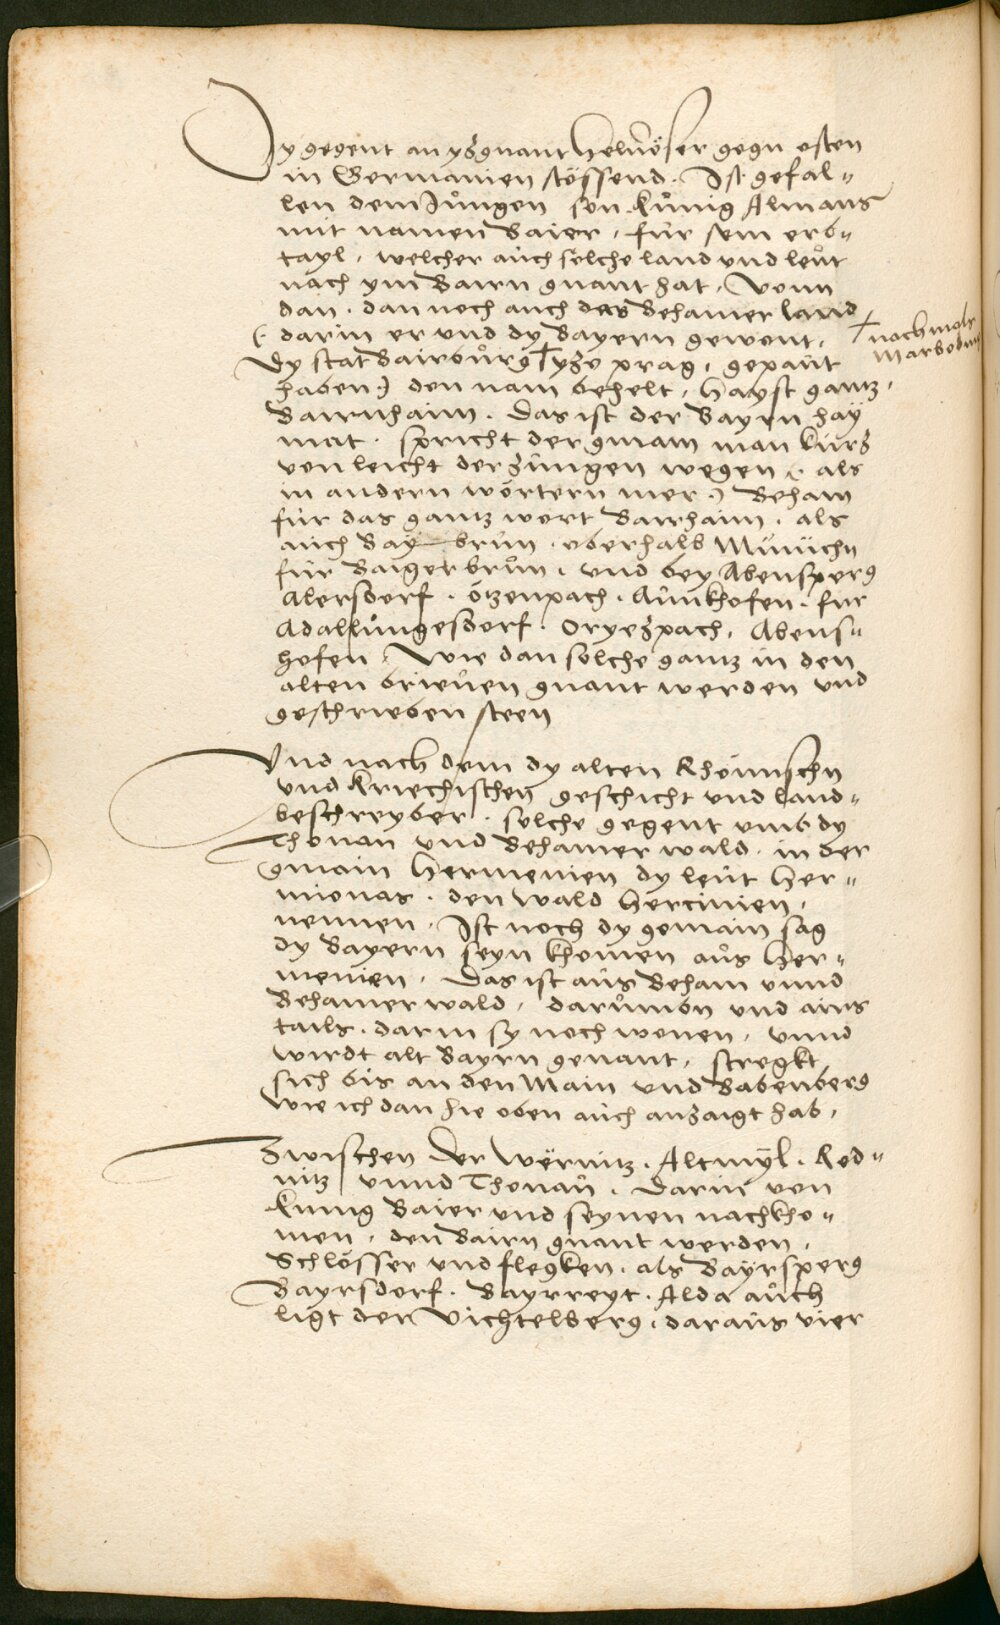 Dy gegent an yzgnant Heluöser gegn osten
in Germanien stössend. Ist gefal„
len dem Jůngen sůn Kůnig Almans
mit namen Baier, für sein erb„
tayl, welcher auch solche land und leůt
nach ym Bairn gnant hat, Vonn
dan, dan noch auch des Behamer land
(. darin er und dy Bayern gewont,
Dy stat Bairbůrg † yze prag, gepaůt
† nachmals
Marbodum
haben .) den nam behelt, Hayst gantz,
Bairnhaim. Das ist der Bayrn hay
mat. spricht der gmain man kürz
von leicht der zůngen wegen (. als
in andern wörtern mer .) Beham
für das gantz wort Bairhaim. als
auch Bay-brůn oberhalb Münichn
für Baigerbrůn, und bey Abensperg
Alersdorf. Otzenpach. Aůnkhofen. für
Adallůngesdorf. Oryezpach, Abens„
hofen. Wie dan solche gantz in den
alten brieuen gnant werden und
geschrieben steen
Und nach dem dy alten Rhömischn
und Kriechischen geschicht und land„
beschreyber. solche gegent umb dy
Thonau und Behamer wald in der
gmain Hermenien dy leůt Her„
mionas. den wald Hercinien,
nennen. Ist noch dy gemain sag
dy Bayern seyn khomen aůs Her„
menien, Das ist aůs Beham unnd
Behamer wald, darůmbn und ains
tails. darin sy noch wonen, unnd
wirdt alt Bayrn genant, stregkt
sich bis an den Main und Babenberg
wie ich dan hie oben auch anzaigt hab,
Zwischen der Wërnitz. Altmÿl. Red„
nitz unnd Thonaů. Darin von
Kunig Baier und seynen nachkho„
men, den Bairn gnant werden,
Schlösser und flegken, als Baÿrsperg
Bayrsdorf. Bayrreyt. Alda aůch
ligt der Vichtelberg, daraůs vier